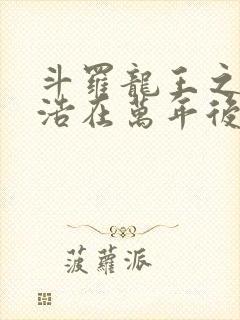 斗羅龍王之
浩在萬年後
菠蘿派